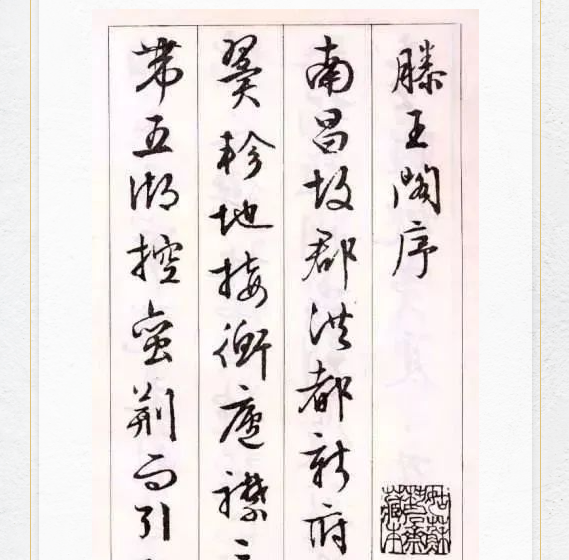 滕王閣序
南昌故郡洪都新府
翼軫地接衡廬襟
帶五湖控蛮荆而引